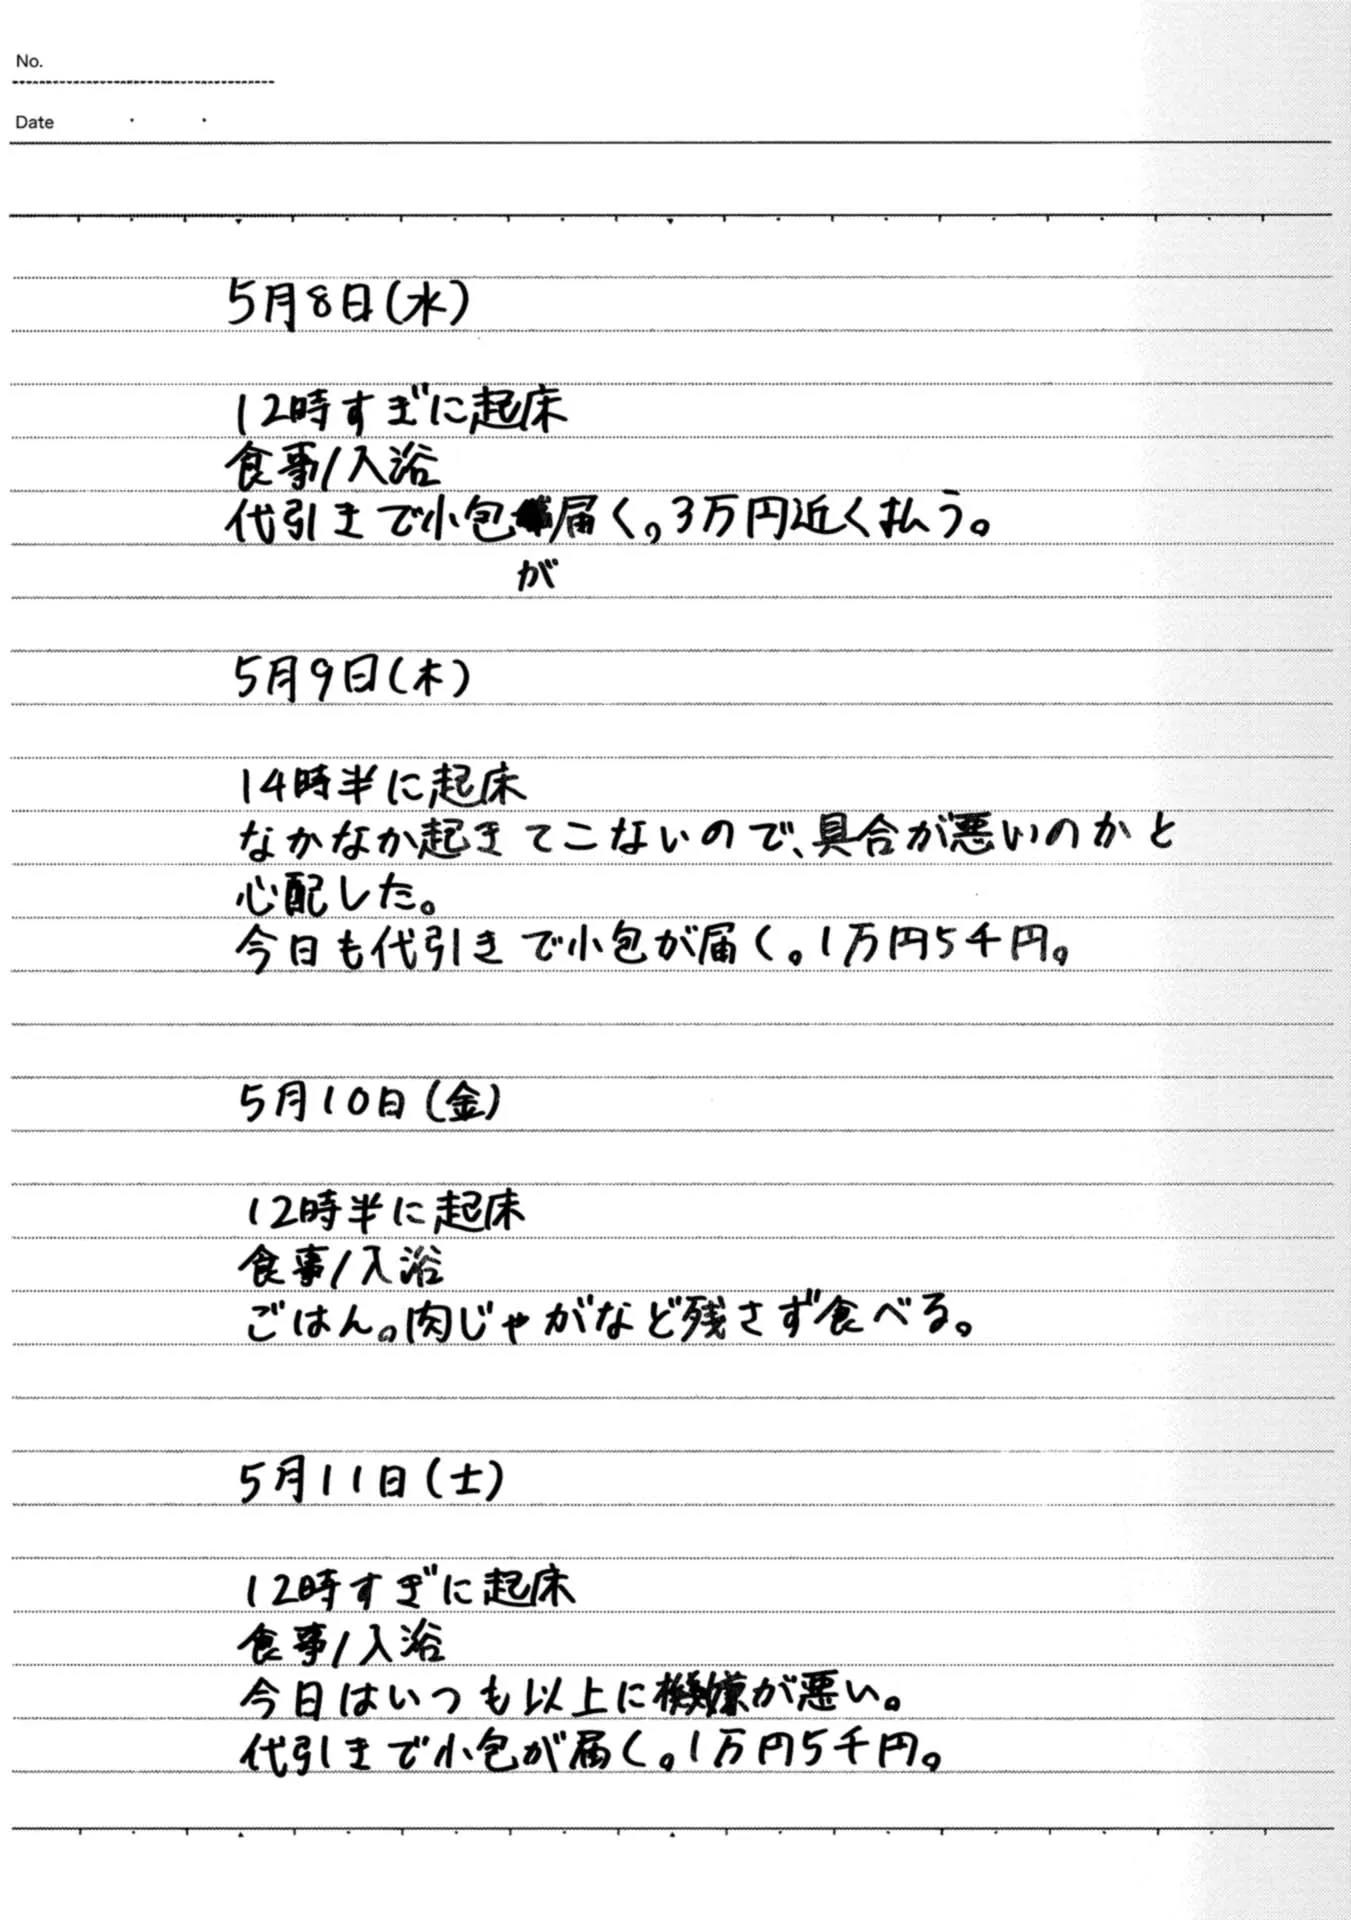 No.
Date
5月8日(水)
12時すぎに起床
食事/入浴
代引きで小包が届く。3万円近く払う。
5月9日(木)
14時半に起床
なかなか起きてこないので、具合が悪いのかと
心配した。
今日も代引きで小包が届く。1万円5千円。
5月10日(金)
12時半に起床
食事/入浴
ごはん。肉じゃがなど残さず食べる。
5月11日(土)
12時すぎに起床
食事/入浴
今日はいつも以上に機嫌が悪い。
代引きで小包が届く。1万円5千円。